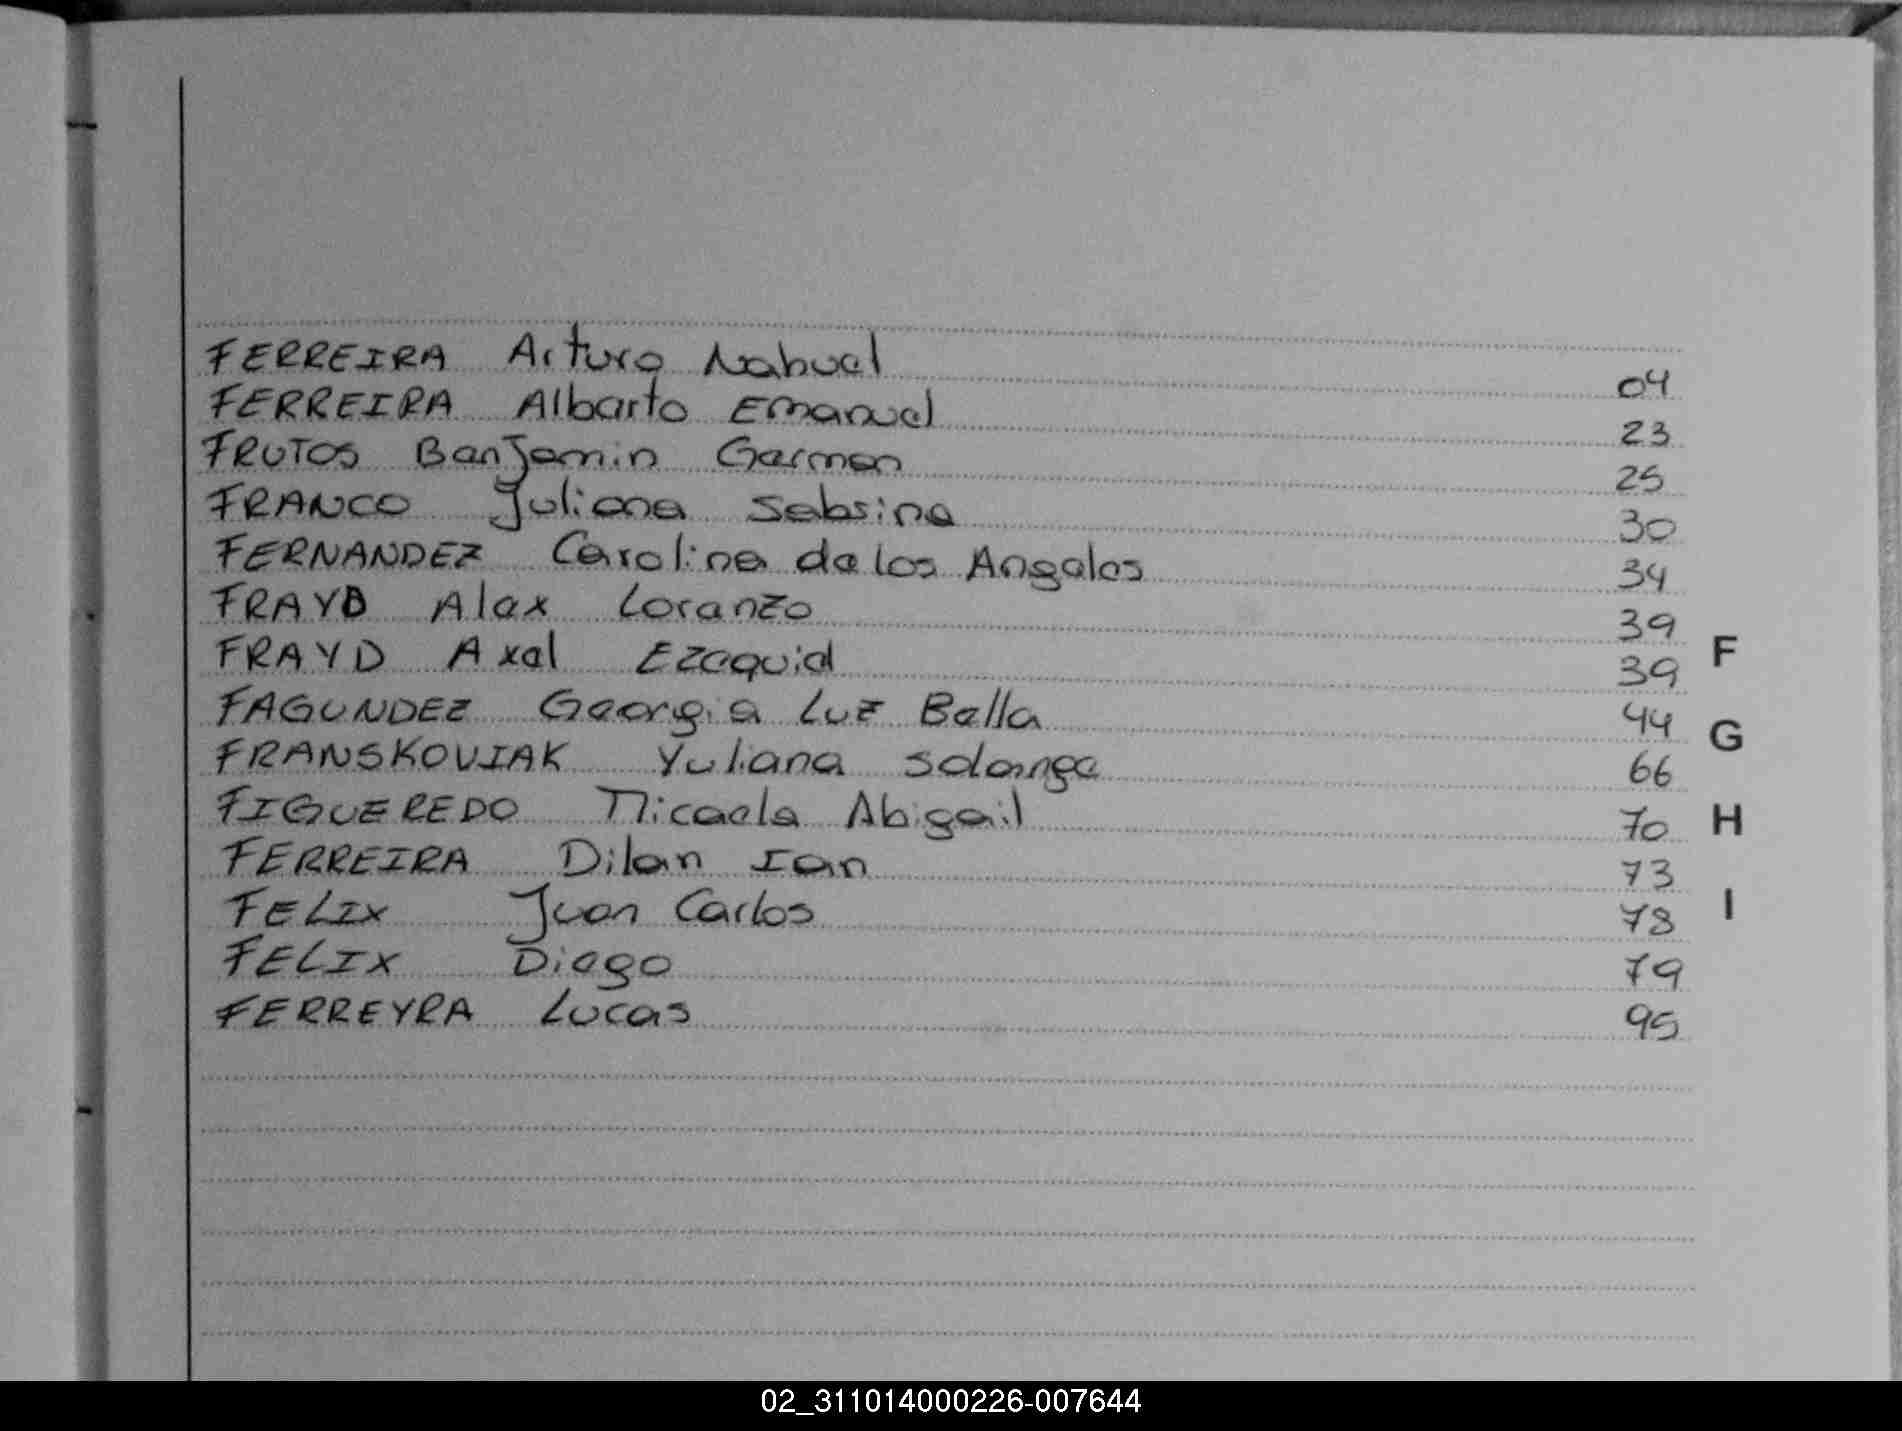 FERREIRA Arturo Nahuel 04
FERREIRA Alberto Emanuel 23
FRUTOS Benjamin German 25
FRANCO Juliana Sabrina 30
FERNANDEZ Carolina de los Angeles 34
FRAYD Alex Lorenzo 39
FRAYD Axel Ezequiel 39
FAGUNDEZ Georgia Luz Bella 44
FRANSKOVIAK Yuliana Solange 66
FIGUEREDO Micaela Abigail 70
FERREIRA Dilan Ian 73
FELIX Juan Carlos 78
FELIX Diego 79
FERREYRA Lucas 95
F
G
H
I
02_311014000226-007644